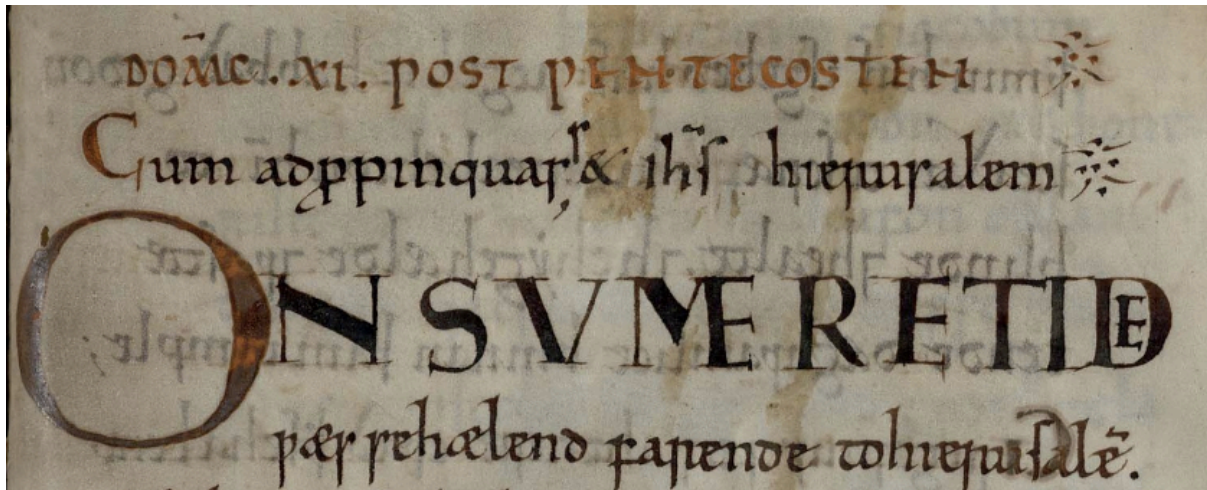 DOM̄C .XI. POST PENTECOSTEN
Cum adꝓpinquar& ih̄s hierusalem
ON SVMERE TIDE
ƿæs se hælend farende to hierusalē.